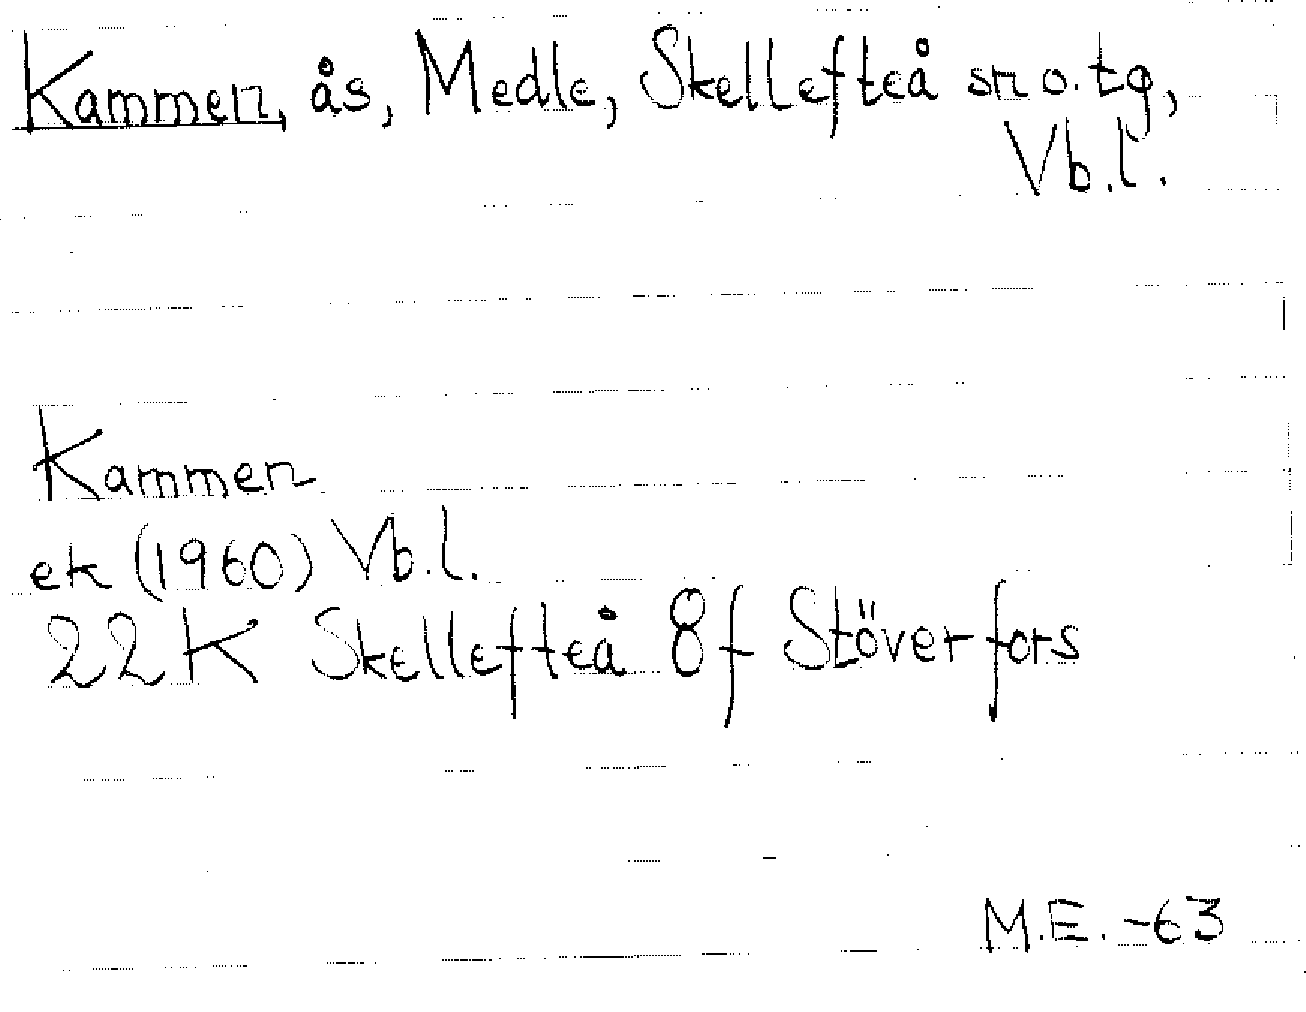 Kammen, ås, Medle, Skellefteå sn o. tg,
Vb.l.
Kammen
ek (1960) Vb.l.
22K Skellefteå 8f Stöverfors
M.E. -63